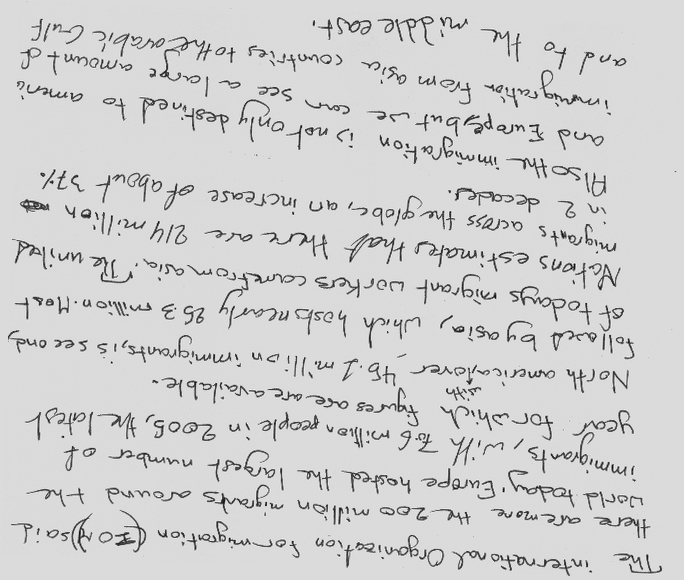 The international Organization for migration (IOM) said
there are more the 200 million migrants around the
world today. Europe hosted the largest number of
immigrants, with 70.6 million people in 2005, the latest
year for which figures are available.
with
North america, over 45.1 million immigrants, is second,
followed by asia, which hosts nearly 25.3 million. Most
of todays migrant workers came from asia. The united
Nations estimates that there are 214 million
migrants across the globe, an increase of about 37%
in 2 decades.
Also the immigration is not only destined to ameri
and Europe, but we can see a large amount of
immigration from asia countries to the arabic Gulf
and to the middle east.